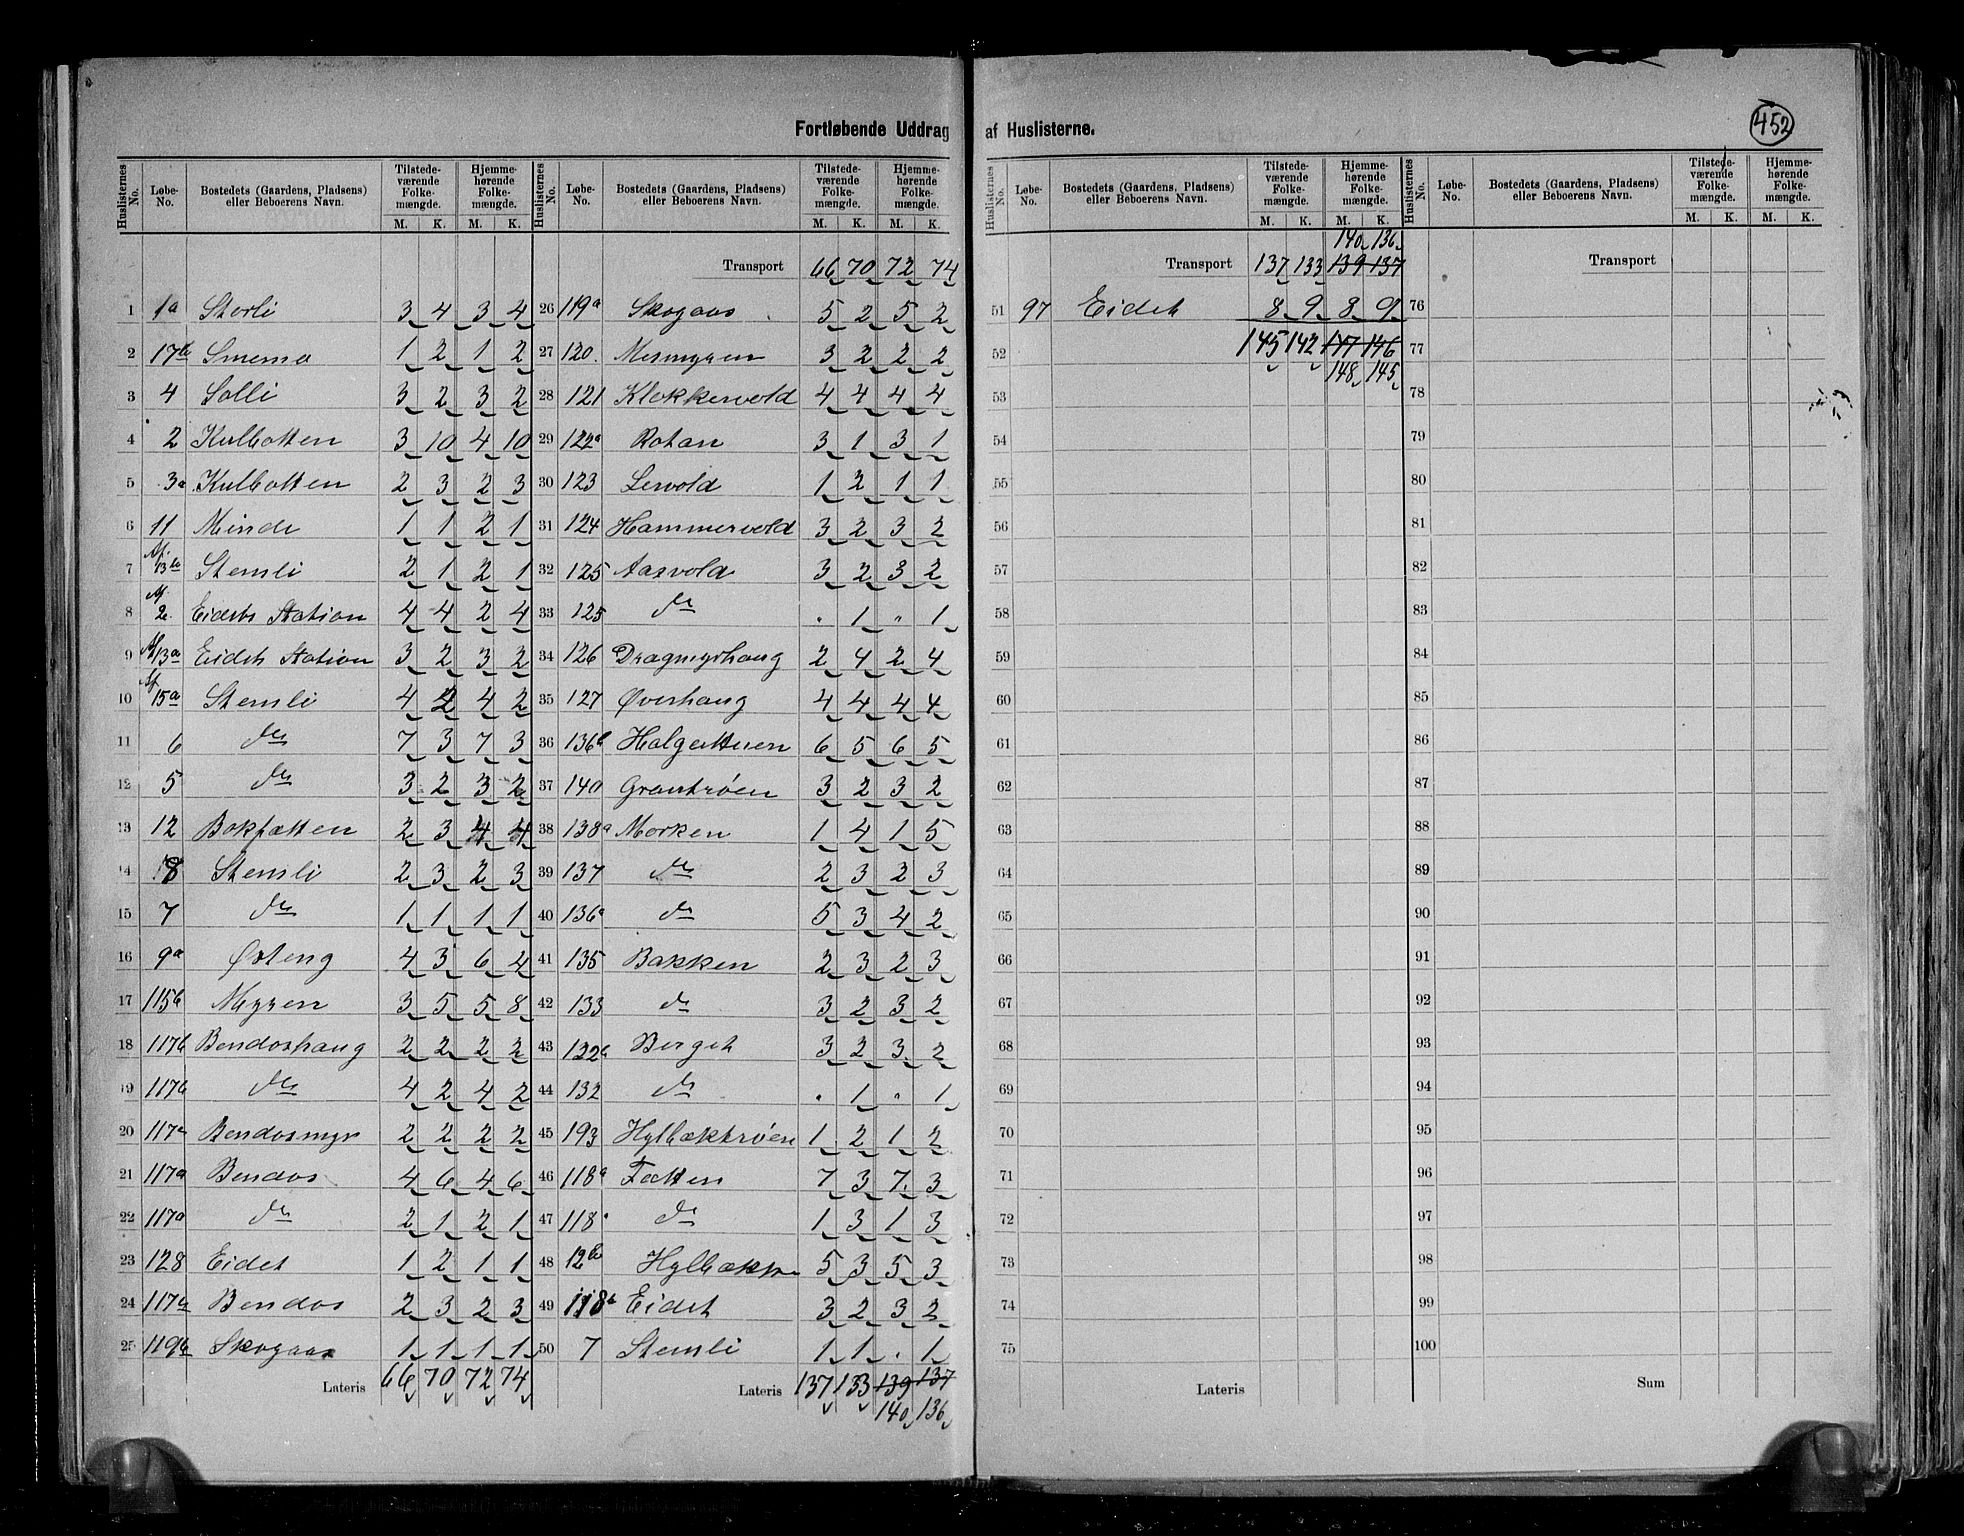 Fortløbende Uddrag af Huslisterne.
452
Huslisternes No. | Løbe-No. | Bostedets (Gaardens, Pladsens) eller Beboerens Navn. | Tilstedeværende Folkemængde. M. K. | Hjemmehørende Folkemængde. M. K.
1 1a Storli 3 4 3 4
2 17b Smemo 1 2 1 2
3 4 Solli 3 2 3 2
4 2 Kulbotten 3 10 4 10
5 3a Kulbotten 2 3 2 3
6 11 Minde 1 1 2 1
7 Af 13b Stemli 2 1 2 1
8 Af 2 Eidets Station 4 4 2 4
9 Af 13a Eidets Station 3 2 3 2
10 Af 15a Stemli 4 2 4 2
11 6 do 7 3 7 3
12 5 do 3 2 3 2
13 12 Bokfatten 2 3 4 4
14 8 Stemsli 2 3 2 3
15 7 do 1 1 1 1
16 9a Østeng 4 3 6 4
17 115b Myren 3 5 5 8
18 117b Bendoshaug 2 2 2 2
19 117b do 4 2 4 2
20 117a Bendosmyr 2 2 2 2
21 117a Bendos 4 6 4 6
22 117a do 2 1 2 1
23 128 Eidet 1 2 1 1
24 117a Bendos 2 3 2 3
25 119b Skogaas 1 1 1 1
Lateris 66 70 72 74
Huslisternes No. | Løbe-No. | Bostedets (Gaardens, Pladsens) eller Beboerens Navn. | Tilstedeværende Folkemængde. M. K. | Hjemmehørende Folkemængde. M. K.
Transport 66 70 72 74
26 119a Skogaas 5 2 5 2
27 120 Mesmyren 3 2 2 2
28 121 Klokkervold 4 4 4 4
29 122a Rotan 3 1 3 1
30 123 Lervold 1 2 1 1
31 124 Hammervold 3 2 3 2
32 125 Aasvold 3 2 3 2
33 125 do . 1 " 1
34 126 Dragmyrhaug 2 4 2 4
35 127 Øverhaug 4 4 4 4
36 136b Holgertuen 6 5 6 5
37 140 Grantrøen 3 2 3 2
38 138a Morken 1 4 1 5
39 137 do 2 3 2 3
40 136a do 5 3 4 2
41 135 Bakken 2 3 2 3
42 133 do 3 2 3 2
43 132b Berget 3 2 3 2
44 132 do . 1 " 1
45 193 Hylbæktrøen 1 2 1 2
46 118a Fatten 7 3 7 3
47 118a do 1 3 1 3
48 12b Hylbækk 5 3 5 3
49 118b Eidet 3 2 3 2
50 7 Stemsli 1 1 . 1
Lateris 137 133 139 137
140 136
Huslisternes No. | Løbe-No. | Bostedets (Gaardens, Pladsens) eller Beboerens Navn. | Tilstedeværende Folkemængde. M. K. | Hjemmehørende Folkemængde. M. K.
140 136
Transport 137 133 139 137
51 97 Eidet 8 9 8 9
52 145 142 147 146
148 145
53
54
55
56
57
58
59
60
61
62
63
64
65
66
67
68
69
70
71
72
73
74
75
Lateris
Huslisternes No. | Løbe-No. | Bostedets (Gaardens, Pladsens) eller Beboerens Navn. | Tilstedeværende Folkemængde. M. K. | Hjemmehørende Folkemængde. M. K.
Transport
76
77
78
79
80
81
82
83
84
85
86
87
88
89
90
91
92
93
94
95
96
97
98
99
100
Sum